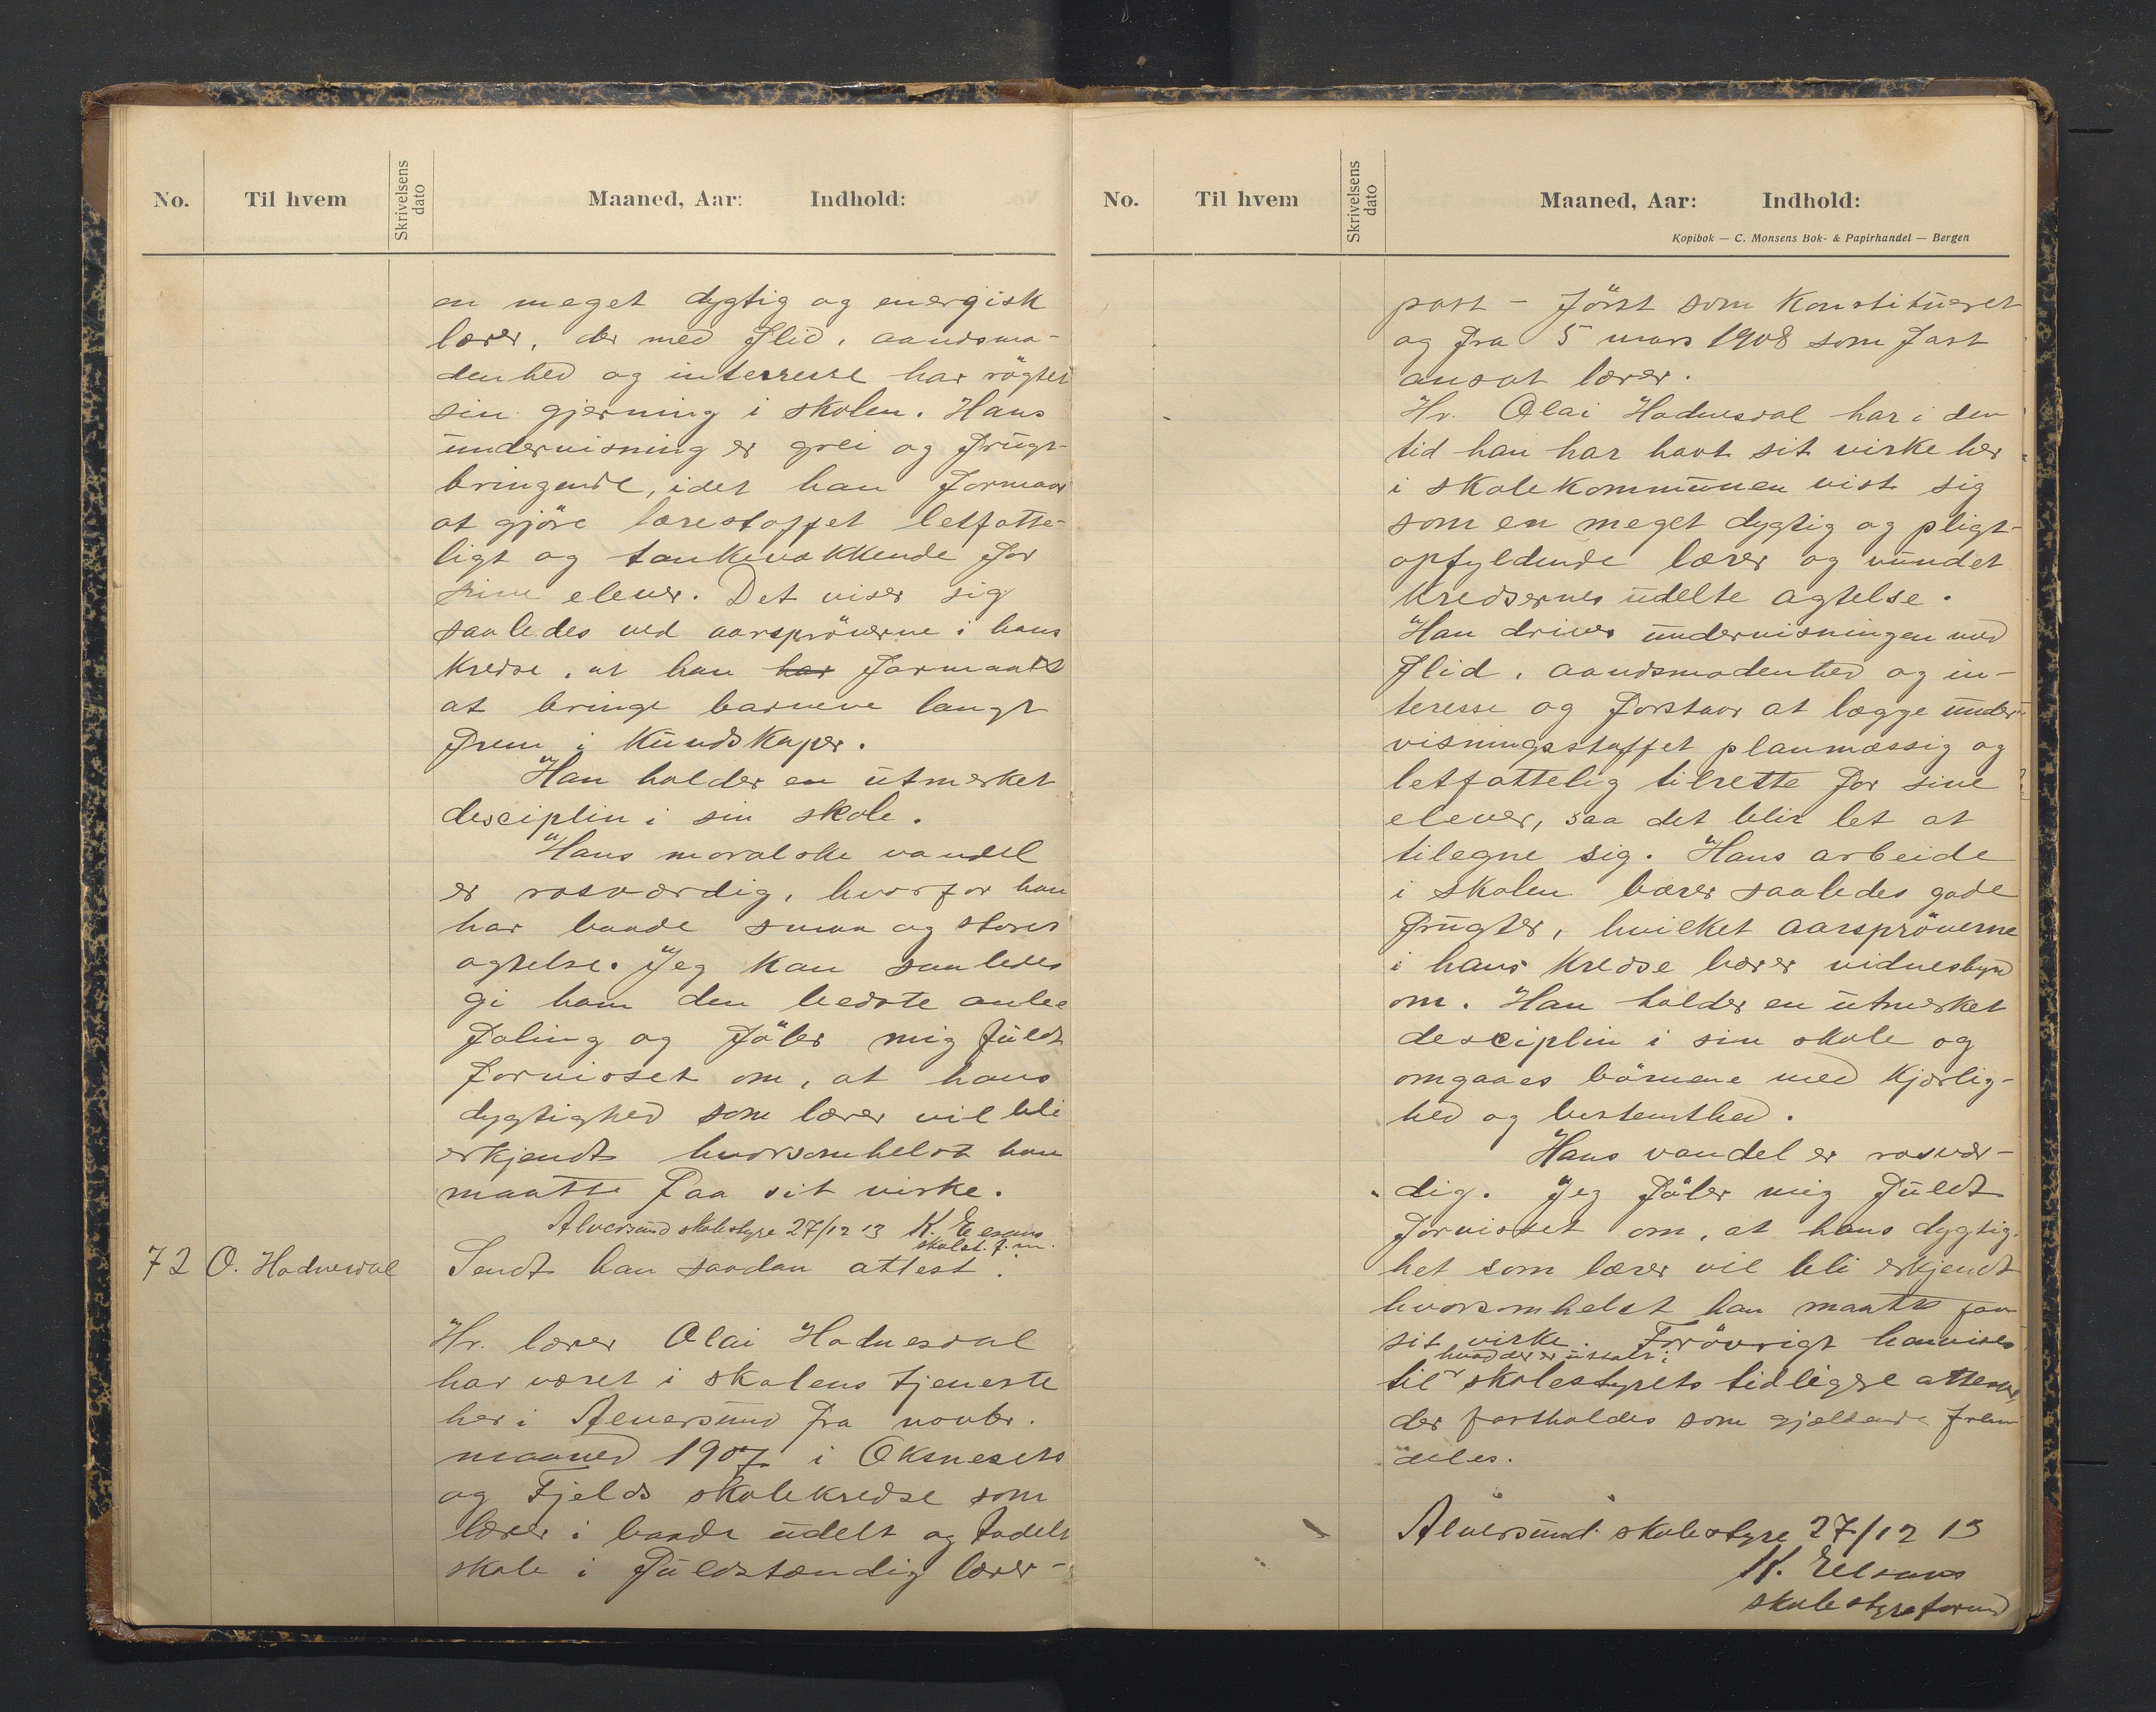 No. Til hvem Skrivelsens dato Maaned, Aar: Indhold:
en meget dygtig og energisk
lærer, der med flid, aandsmo-
denhed og interresse har røgtet
sin gjerning i skolen. Hans
undervisning er grei og frugt-
bringende, idet han formaar
at gjöre lærestoffet letfatte-
ligt og tankevækkende for
sine elever. Det viser sig
saaledes ved aarspröverne i hans
kredse, at han har formaadt
at bringe barnene langt
frem i kundskaper.
Han holder en utmerket
desciplin i sin skole.
Hans moralske vandel
er rosværdig, hvorfor han
har baade smaa og stores
agtelse. Jeg kan saaledes
gi ham den bedste anbe
faling og föler mig fuldt
forvisset om, at hans
dygtighed som lærer vil bli
erkjendt hvorsomhelst han
maatte faa sit virke.
Alversund skolestyre 27/12 13 K. Eelsaas
skolst. f.m.
72 O. Hodnesdal Sendt han saadan attest.
Hr. lærer Olai Hodnesdal
har været i skolens tjeneste
her i Alversund fra novbr.
maaned 1907 i Oksnesets
og Fjelds skolekredse som
lærer i baade udelt og todelt
skole i fuldstændig lærer-
No. Til hvem Skrivelsens dato Maaned, Aar: Indhold:
Kopibok — C. Monsens Bok- & Papirhandel — Bergen
post - först som konstitueret
og fra 5 mars 1908 som fast
ansat lærer.
Hr. Olai Hodnesdal har i den
tid han har havt sit virke her
i skolekommunen vist sig
som en meget dygtig og pligt-
opfyldende lærer og vundet
kredsernes udelte agtelse.
Han driver undervisningen med
flid, aandsmodenhed og in-
teresse og forstaar at lægge under-
visningsstoffet planmæssig og
letfattelig tilrette for sine
elever, saa det blir let at
tilegne sig. Hans arbeide
i skolen bærer saaledes gode
frugter, hvilket aarspröverne
i hans kredse bærer vidnesbyrd
om. Han holder en utmerket
desciplin i sin skole og
omgaaes börnene med kjærlig-
hed og bestemthed.
Hans vandel er rosvær-
dig. Jeg föler mig fuldt
forvisset om, at hans dygtig-
het som lærer vil bli erkjendt
hvorsomhelst han maatte faa
sit virke. Forövrigt henvises
hvad der er uttalt i
til skolestyrets tidligere attester,
der fastholdes som gjældende frem
deles.
Alversund skolestyre 27/12 13
K. Eelsaas
skolestyreformd